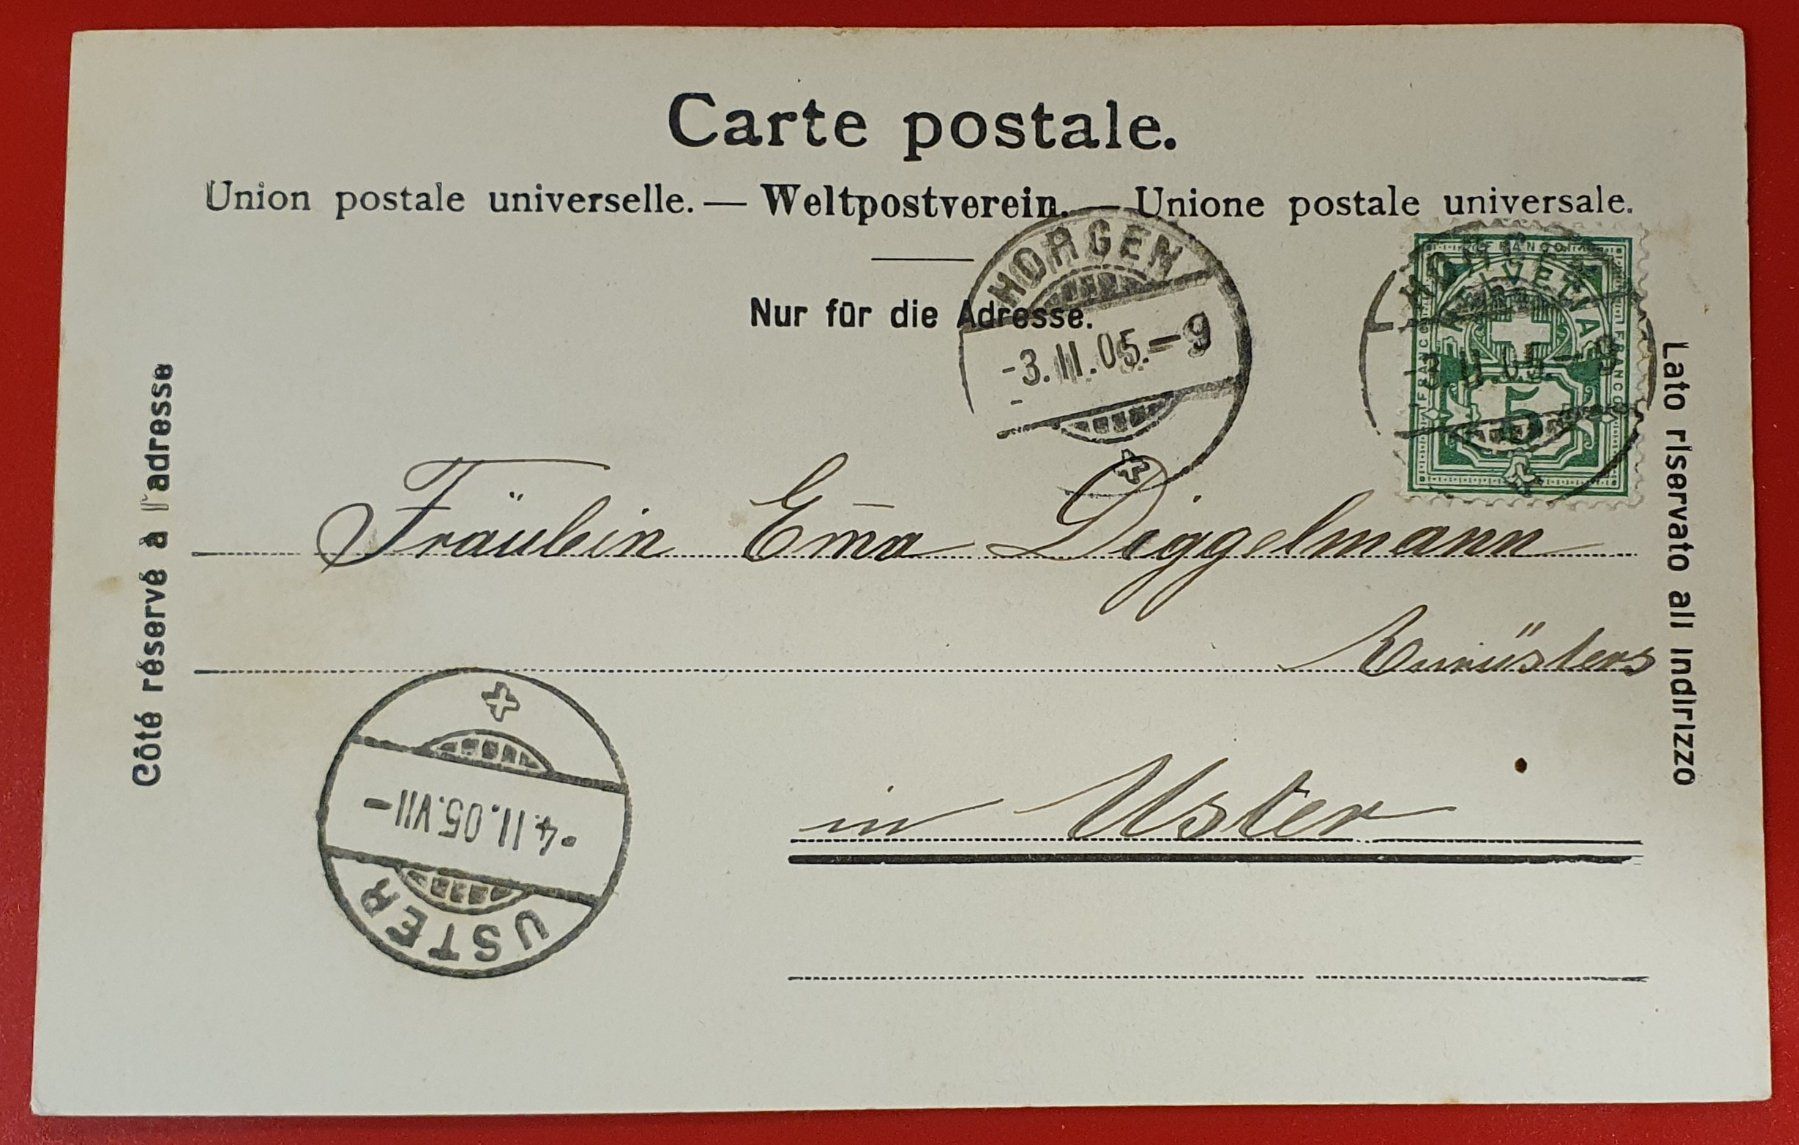 Carte postale.
Union postale universelle. — Weltpostverein. — Unione postale universale.
Nur für die Adresse.
Côté réservé à l'adresse
Lato riservato all indirizzo
HORGEN
-3.II.05.-9
HORGEN
-3.II.05.-9
FRANCO
HELVETIA
FRANCO
FRANCO
5
Fräulein Em̄a Diggelmann
in Uster
USTER
-4.II.05.VII-